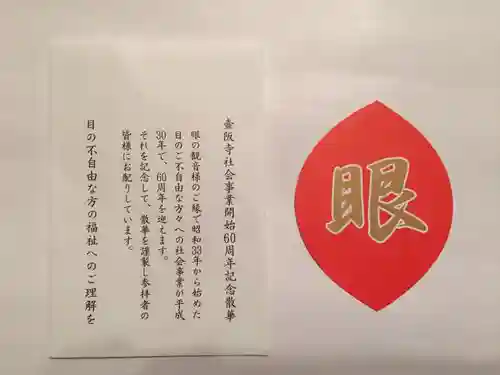 壷阪寺社会事業開始60周年記念散華
眼の観音様のご縁で昭和33年から始めた
目のご不自由な方々への社会事業が平成
30年で、60周年を迎えます。
それを記念して、散華を謹製し参拝者の
皆様にお配りしています。
目の不自由な方の福祉へのご理解を
眼